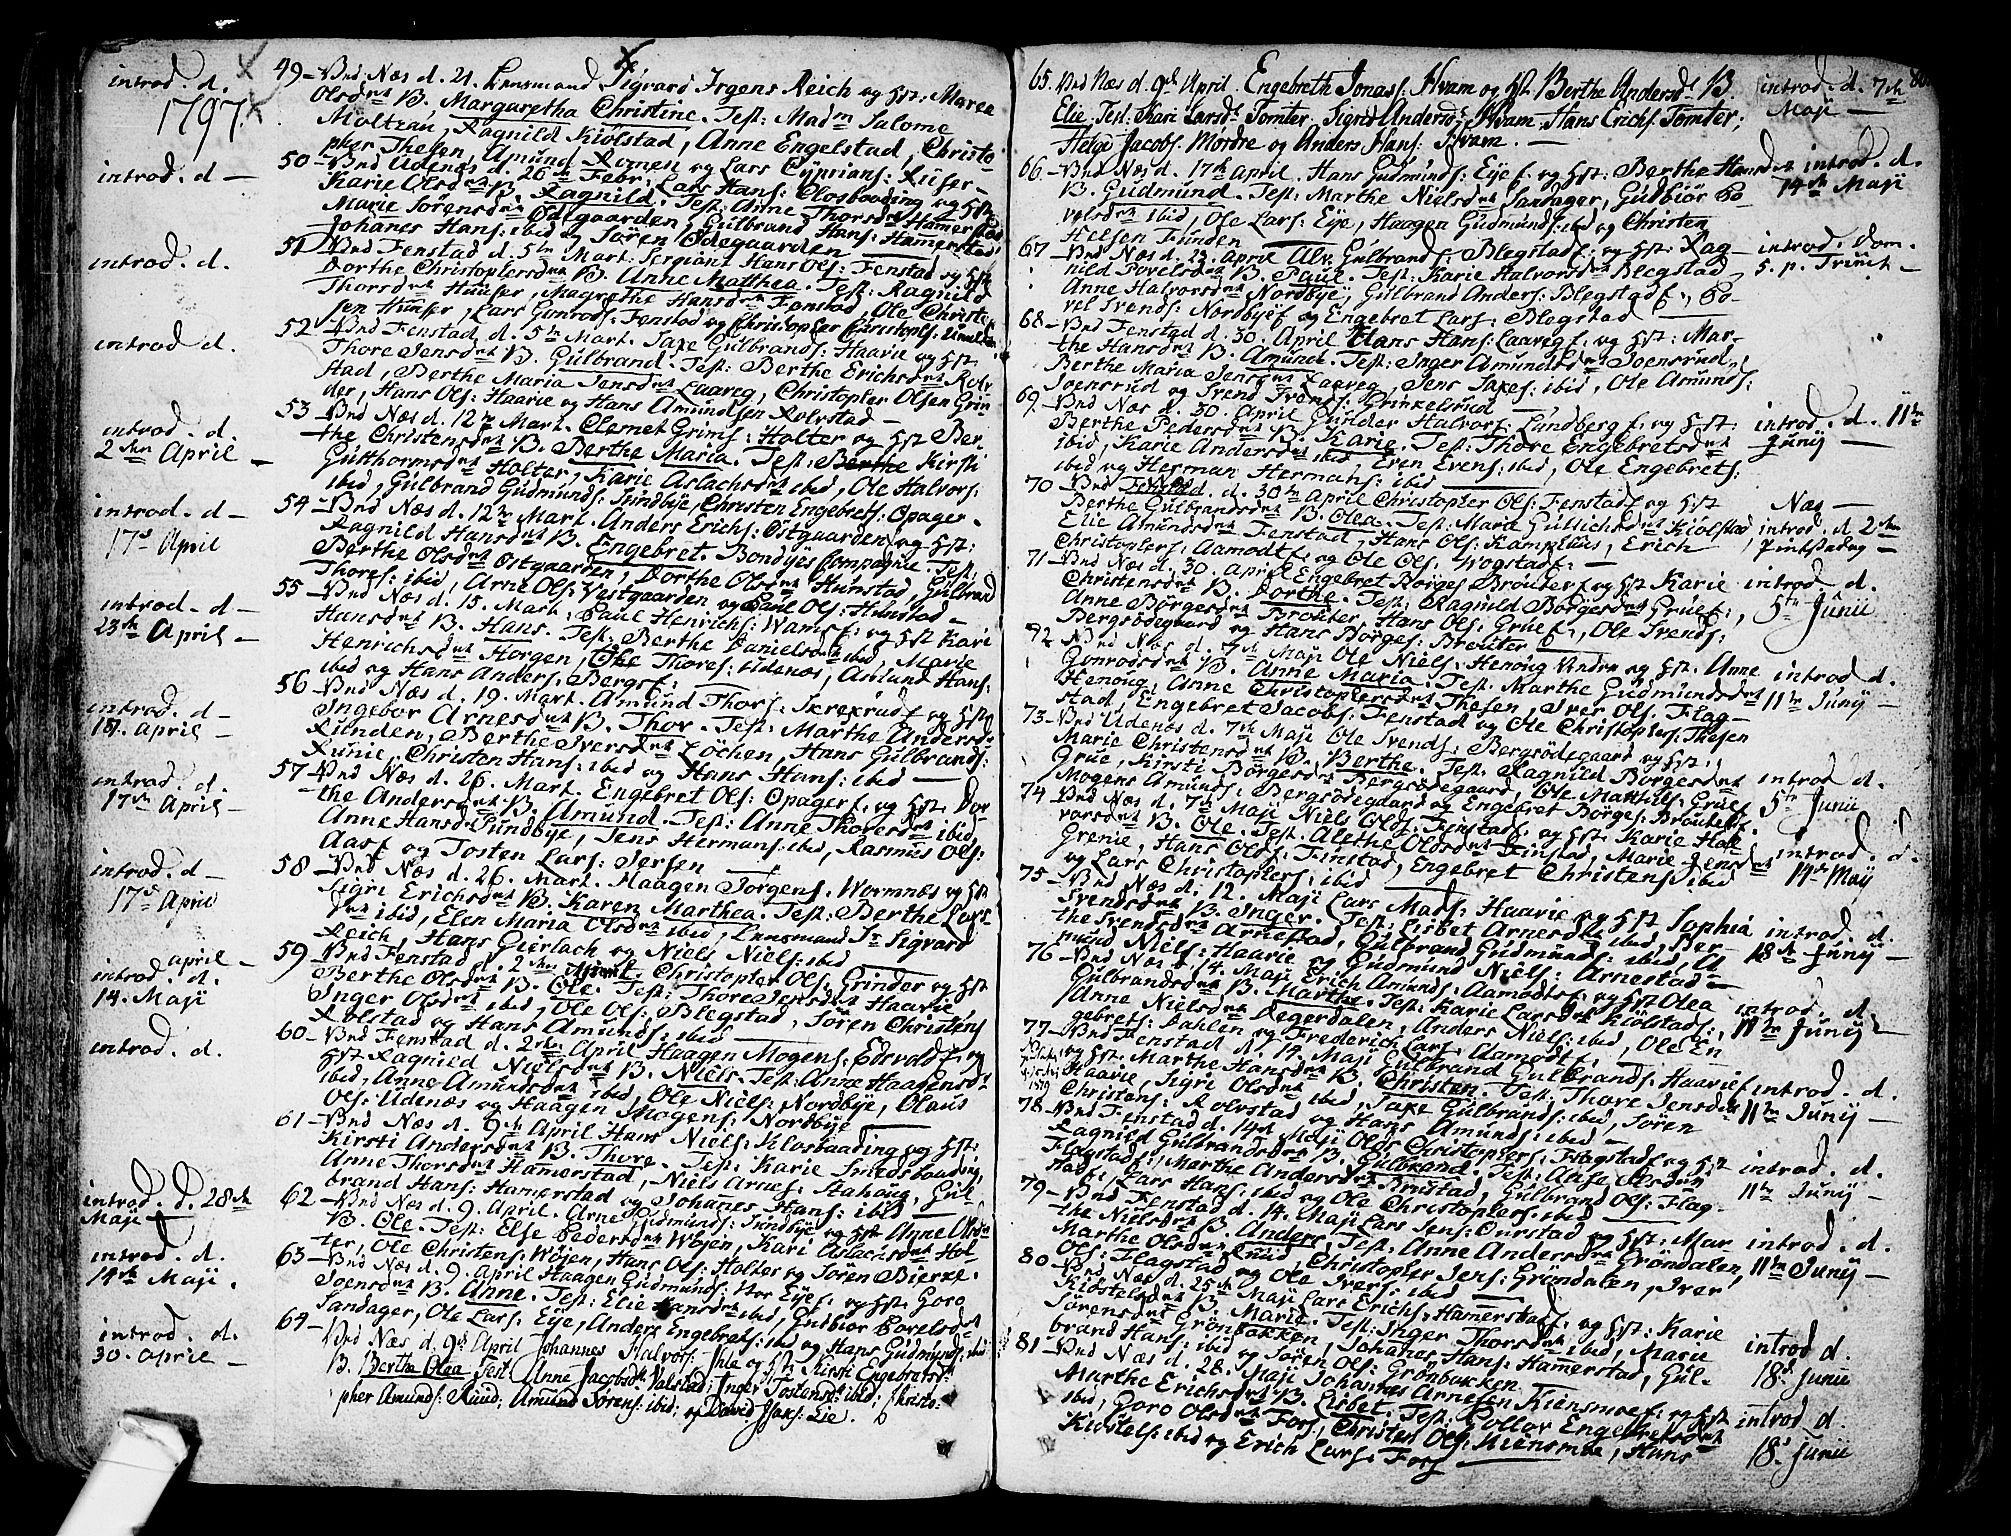 introd. d.
1797.
49 - Und Næs d. 21. Lensmand Sigvard Irgens Reich og Hst: Maren
Olsdatr B. Margaretha Christine. Test: Madm Salome
Moltzau, Ragnild Kiölstad, Anne Engelstad, Christo-
pher Thesen, Amund
introd. d -
50 - Und Udenæs d. 26 Febr. Lars Hans: Closbaading og Hst
Karie Olsdatr B. Ragnild. Test: Anne Thorsdatr Hamerstad
Marie Sörensdatr Ödegaarden, Gulbrand Hans: Hamerstad,
Johanes Hans: ibid og Sören Ödegaarden
introd. d.
51 - Und Fenstad d. 5te Mart. Sergiant Hans Ols: Fenstad og Hst
Dorthe Christophersdatr B. Anne Matthea. Test: Ragnild
Thorsdatr Huuser, Magrethe Hansdatr Fenstad, Ole Christi-
sen Huuser, Lars Fenstad og Christopher Christophs:
introd d.
52 - Und Fenstad d. 5te Mart. Gulbrands: Haarie og Hst
Thore Jensdatr B. Gulbrand. Test: Berthe Erichsdatr Rolv-
stad, Berthe Maria Jensdatr Laaveg, Christopher Olsen Grin-
der, Hans Ols: Haarie og Hans Amundsen Rolvstad -
introd. d.
2den April -
53 - Und Næs d. 12te Mart. Clemet Grims: Holter og Hst Ber-
the Christensdatr B. Berthe Maria. Test: Berthe Kirsti
Gutthormsdatr Holter, Karie Aslachsdatr ibid, Ole Halvors:
ibid, Gulbrand Gudmunds: Sundbye, Christen Engebrets: Opager.
introd. d -
17d April
54 - Und Næs d. 12te Mart. Anders Erichs: Östgaarden og Hst:
Ragnild Hansdatr B. Engebret. Bondbyes Compagnie. Test:
Berthe Olsdatr Ostgaarden, Dorthe Olsdatr Hunstad, Gulbrand
Thores: ibid, Arne Ols: Vestgaarden og Paul Ols: Hunstad -
introd. - d -
23de April -
55 - Und Næs d. 15. Mart. Paul Henrichs: Wamsf. og Hst Kari
Hansdatr B. Hans. Test: Berthe Danielsdatr ibid, Marie
Henrichsdatr Horgen, Ole Thores: Udenæs, Amund Hans:
ibid og Hans Anders: Bergsf: -
introd. d -
18d. April -
56 - Und Næs d. 19. Mart. Amund Thors: og Hst
Ingebor Arnesdatr B. Thor. Test: Marthe Andersd:
Runden, Berthe Iversdatr Löchen, Hans Gulbrands:
Runie, Christen Hans: ibid og Hans Hans: ibid -
introd. d.
17de April -
57 - Und Næs d. 26. Mart. Engebret Ols: Opagerf. og Hst: Dor-
the Andersdatr B. Amund. Test: Anne Thoresdatr ibid,
Anne Hansdr Sundbye, Jens Hermans: ibid, Rasmus Ols:
Aasf og Tosten Lars: Jersen
introd. d -
17d April
58 - Und Næs d. 26. Mart. Haagen Jorgens: Wormnæs og Hst
Sigri Erichsdatr B. Karen Marthea. Test: Berthe Lars-
datr ibid, Elen Maria Olsdatr ibid, Lensmand Sr Sigvard
Reich, Hans Gierlach og Niels Niels: ibid
april -
introd. d.
14. Maji
59 - Und Fenstad d. 2den April. Christopher Ols: Grinder og Hst
Berthe Olsdatr B. Ole. Test: Thore Jensdatr Haarie,
Inger Olsdatr ibid, Ole Ols: Blegstad, Sören Christens
Rolstad og Hans Amunds: ibid
introd. d.
60 - Und Fenstad d. 2den April Haagen Mogens: Edsvoldf. og
Hst Ragnild Nielsdatr B. Niels. Test: Anne Haagensdr
ibid, Anne Amundsdatr ibid, Ole Niels: Nordbye, Olaus
Ols: Udenæs og Haagen Mogens: Nordbye
61 - Und Næs d. 9de April Hans Niels: Klosbaading og Hst:
Kirsti Andersdatr B. Thore. Test: Karie Smedsbaading,
Anne Thorsdatr Hamerstad, Niels Arnes: Stahoug, Gul-
brand Hans: Hamerstad og Johanes Hans: ibid
introd. d. 28de
Maji -
62 - Und Næs d. 9. April. Arne Gudmunds: Sundbye og Hst Anne Olsda-
B. Ole. Test: Else Pedersdatr Wöjen, Kari Aslachsdatr Hol-
ter, Ole Christens: Wöjen, Hans Ols: Holter og Sören Bierke.
introd. d.
14de Maji.
63 - Und Næs d. 9. April Haagen Gudmunds: Eyef. og Hst Goro
Joensdatr B. Anne. Test: Elie Hansdatr ibid, Gudbior Povelsdatr
Sandager, Ole Lars: Eye, Anders Engebrets: ibid og Hans Gudmunds: ibid
introd. d.
30. april -
64 - Und Næs d. 9de April Johannes Halvors: Ihle og Hst Kirsti Engebretsd:
B. Berthe Olea. Test Anne Jacobsdr Valstad; Inger Tostensdr ibid; Christo-
pher Amunds: Ruud; Amund Sörens: ibid; og David Isaks: Lie.
65. Und Næs d. 9de April. Engebreth Jonas: Hvam og Hst Berthe Andersdr B
Elie, Test. Kari Larsdr Tomter, Sigrid Andersdr Hvam. Hans Erichs Tomter;
Helge Jacobs: Mordre og Anders Hans: Hvam. -
introd. d. 7de
Maji -
66 - Und Næs d. 17de April. Hans Gudmunds: Eyef. og Hst: Berthe Hansdatr
B. Gudmund. Test: Marthe Nielsdatr Sandager, Gudbiör Po-
velsdatr ibid, Ole Lars: Eye, Haagen Gudmunds: ibid og Christen
Helsen Funden
introd. d.
14de Maji
67 - Und Næs d. 23. April Alv. Gulbrands: Blegstadf. og Hst: Rag-
nild Povelsdatr B. Paul. Test: Karie Halvorsdatr Blegstad,
Anne Halvorsdatr Nordbye, Gulbrand Anders: Blegstadf., Po-
vel Svends: Nordbyef og Engebret Lars: Blegstad
introd. Dom.
5. p. Trinit -
68 - Und Fenstad d. 30. April Hans Hans: Laavegf. og Hst: Mar-
the Hansdatr B. Amund. Test: Inger Amundsdatr Joensrud,
Berthe Maria Jensdatr Laaveg, Jens ibid, Ole Amunds:
Joensrud og Svend Svends: Grinkelsrud
69. - Und Næs d. 30. April Gunder Halvors: Lundbergf. og Hst:
Berthe Pedersdatr B. Karie. Test: Thore Engebretsdatr
ibid, Karie Andersdatr ibid, Even Evens: ibid, Ole Engebrets:
ibid og Herman Hermans: ibid
introd. d. 11te
Junij -
70 - Und Fenstad d. 30te April Christopher Ols: Fenstadf og Hst
Berthe Gulbrandsdatr B. Olea. Test: Marie Gullichsdatr Kiölstad
Elie Amundsdatr Fenstad, Hans Ols: Kampelius, Erich
Christophers: Aamodtf. og Ole Ols: Wogstadf: -
Næs -
introd. d 2den
Pintsedag -
71 - Und Næs d. 30. April Engebret Börges: Brouterf. og Hst Karie
Christensdatr B. Dorthe. Test: Ragnild Borgesdatr Gruef:,
Anne Börgesdatr Brouter, Hans Ols: Gruef., Ole Svends:
Bergsödegaard og Hans Börges: Brouter
introd. d.
5te Junii
72 - Und Næs d. 7de Maji Ole Niels: Henoug Undru og Hst: Anne
Gonrodsdatr B. Anne Maria. Test: Marthe Gudmundsdatr
Henoug, Anne Christophersdatr Thesen, Iver Ols: Flag-
stad, Engebret Jacobs: Fenstad og Ole Christophers: Thesen
introd. d.
11te Junij -
73 - Und Udenæs d. 7de Maji Ole Svends: Bergsödegaard og Hst:
Marie Christensdatr B. Berthe. Test: Ragnild Borgesdatr
Grue, Kirsti Börgesdatr Bergsödegaard, Ole Matthis: Gruef
Mogens Amunds: Bergsödegaard og Engebret Börges: Brouterf.
introd d.
5te Junii
74 - Und Næs d. 7de Maji Niels Ols: Finstadf. og Hst: Karie Hal-
vorsdatr B. Ole. Test. Alethe Olsdatr Finstad, Marie Jensdatr
Grenie, Hans Ols: Finstad, Engebret Christens: ibid
og Lars Christophers: ibid
introd. d.
14de Maij
75 - Und Næs d. 12. Maji Lars Mads: Haarie og Hst Sophia
Svendsdatr B. Inger. Test: Lisbet Arnesdtr ibid, Ber-
the Svendsdr Arnestad, Gulbrand Gudmunds: ibid, A-
mund Niels: Haarie og Gudmund Niels: Arnestad -
introd. d.
18de Junij -
76 - Und Næs d. 14. Maji Erich Amunds: Aamodtf. og Hst Olea
Gulbrandsdatr B. Marthe. Test: Karie Larsdatr Kiölstad:,
Anne Nielsdatr Degerdalen, Anders Niels: ibid, Ole En-
gebrets: Dahlen og Frederich Lars: Aamodtf. -
introd. d.
11te Junij -
77 - Und Fenstad d. 14. Maji Gulbrand Gulbrands: Haarief
og Hst: Marthe Hansdatr B. Christen. Test: Thore Jensdatr
Haarie, Sigri Olsdatr ibid, Gulbrands: ibid, Sören
Christens: Rolvstad og Hans Amunds: ibid -
1819
introd. d.
11te Junij -
78 - Und Fenstad d. 14de Maji Ole Christophers: Flagstadf og Hst
Ragnild Gulbrandsdatr B. Gulbrand. Test:
Flagstad:, Marthe Andersdatr Brustad, Gulbrand Ols: Flag-
stadf:, Lars Hans: ibid og Ole Christophers: ibid
introd. d.
11te Junij -
79 - Und Fenstad d. 14. Maji Lars Jens: Ourstad og Hst: Mar-
the Nielsdatr B. Anders. Test: Anne Andersdatr Gröndalen,
Marthe Olsdatr Ruud, Christopher Jens: Gröndalen, Iver
Ols: Flagstad og Ole Ivers: ibid
introd. d.
11te Junij -
80 - Und Næs d. 25de Maji Lars Erichs: Hamerstadf. og Hst: Karie
Kiöstelsdatr B. Marie. Test: Inger Thorsdatr ibid, Marie
Sörensdatr Grönbakken, Johanes Hans: Hamerstad, Gul-
brand Hans: ibid og Sören Ols: Grönbakken
introd d.
18d Junii
81 - Und Næs d. 28. Maji Johannes Arnesen Kiensmoef: og Hst
Marthe Erichsdatr B. Lisbet. Test: Engebretsdatr
ibid, Goro Olsdatr Fors, Christen Ols: Kiensmoe, Hans
Kiöstels: ibid og Erich Lars: Fors
introd d.
18d Junii